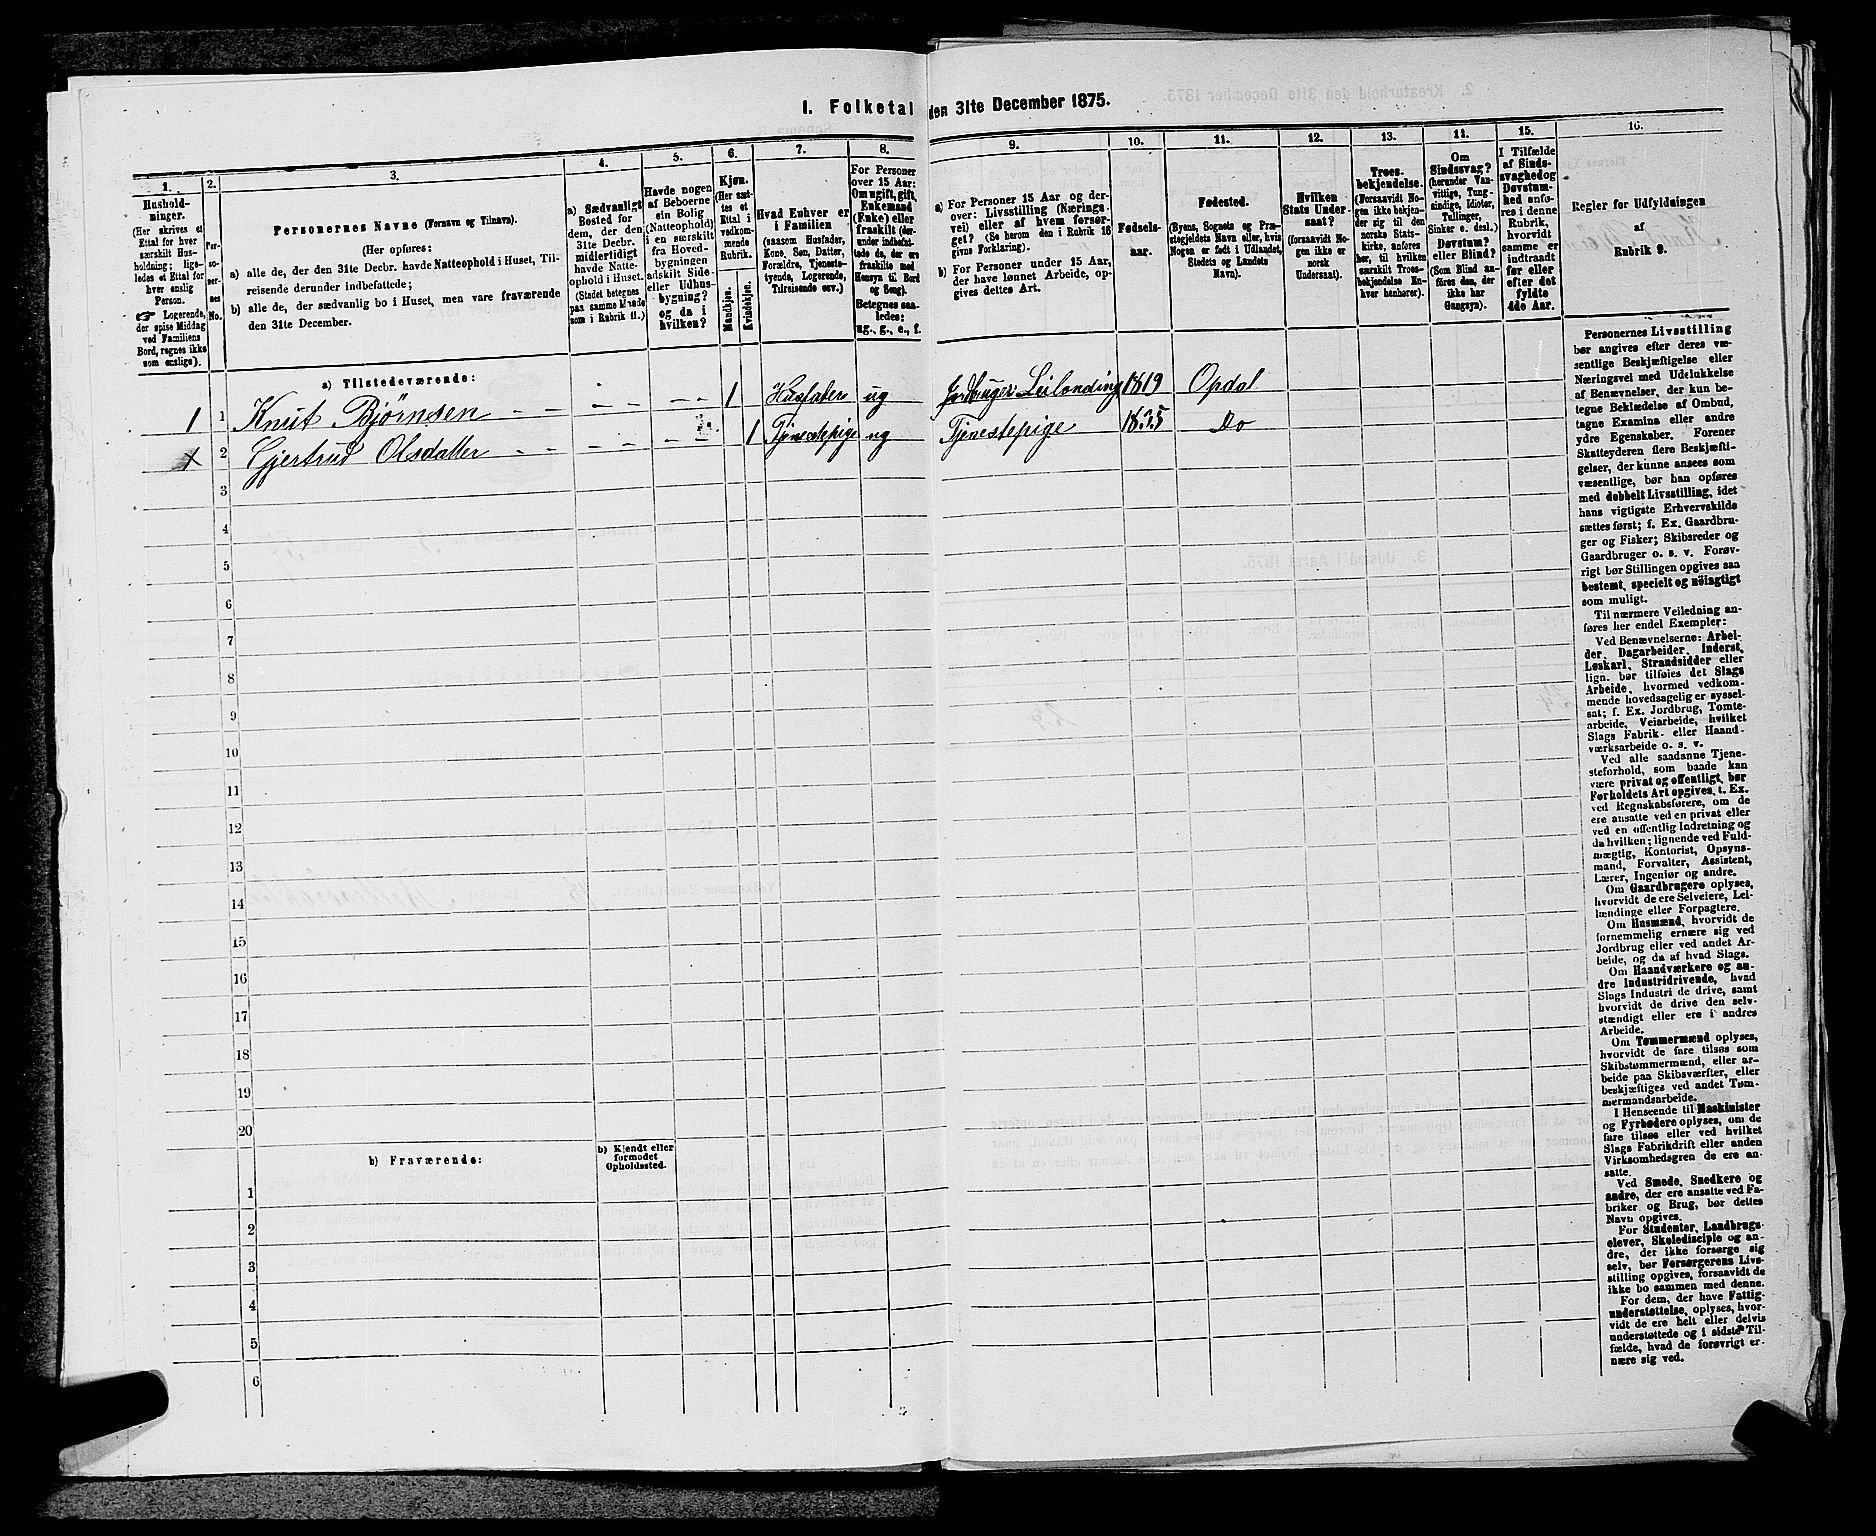 I. Folketal den 31te December 1875.
1.
Hushold-
ninger.
(Her skrives et
Ettal for hver
særskilt Hus-
holdning; lige-
ledes et Ettal for
hver enslig
Person.
☞ Logerende,
der spise Middag
ved Familiens
Bord, regnes ikke
som enslige).
2.
Per-
so-
ner-
nes
No.
3.
Personernes Navne (Fornavn og Tilnavn).
(Her opføres:
a) alle de, der den 31te Decbr. havde Natteophold i Huset, Til-
reisende derunder indbefattede;
b) alle de, der sædvanlig bo i Huset, men vare fraværende
den 31te December.
4.
a) Sædvanligt
Bosted for
dem, der den
31te Decbr.
midlertidigt
havde Natte-
ophold i Huset.
(Stedet betegnes
paa samme Maade
som i Rubrik 11.)
5.
Havde nogen
af Beboerne
ein Bolig
(Natteophold)
i en særskilt
fra Hoved-
bygningen
adskilt Side-
eller Udhus-
bygning?
og da i
hvilken?
6.
Kjøn.
(Her sæt-
tes et
Ettal i
vedkom-
mende
Rubrik.
Mandkjøn.
Kvindekjøn.
7.
Hvad Enhver er
i Familien
(saasom Husfader,
Kone, Søn, Datter,
Forældre, Tjeneste-
tyende, Logerende,
Tilreisende osv.)
8.
For Personer
over 15 Aar:
Om ugift, gift,
Enkemand
(Enke) eller
fraskilt (der-
under indbefat-
tede de, der ere
fraskilte med
Hensyn til Bord
og Seng).
Betegnes saa-
ledes:
ug., g., e., f.
9.
a) For Personer 15 Aar og der-
over: Livsstilling (Nærings-
vei) eller af hvem forsør-
get? (Se herom den i Rubrik 16
givne Forklaring).
b) For Personer under 15 Aar,
der have lønnet Arbeide, op-
gives dettes Art.
10.
Fødsels-
aar.
11.
Fødested.
(Byens, Sognets og Præ-
stegjeldets Navn eller, hvis
Nogen er født i Udlandet,
Stedets og Landets
Navn).
12.
Hvilken
Stats Under-
saat?
(forsaavidt No-
gen ikke er
norsk
Undersaat).
13.
Troes-
bekjendelse.
(Forsaavidt No-
gen ikke bekjen-
der sig til den
norske Stats-
kirke, anføres
her, til hvilken
særskilt Troes-
bekjendelse En-
hver henhører).
14.
Om
Sindssvag?
(herunder Van-
vittige, Tung-
sindige, Idioter,
Tullinger,
Sinker o. desl.)
Døvstum?
eller Blind?
(Som Blind an-
føres den, der
ikke har
Gangsyn).
15.
I Tilfælde
af Sinds-
svaghed og
Døvstum-
hed anfø-
res i denne
Rubrik,
hvorvidt
samme er
indtraadt
før eller
efter det
fyldte
4de Aar.
16.
Regler for Udfyldningen
af
Rubrik 9.
a) Tilstedeværende:
1 1 Knut Bjørnsen 1 Husfader ug Jordbruger Leilending 1819 Opdal
1 2 Gjertrud Olsdatter 1 Tjenestepige ug Tjenestepige 1835 Do
3
4
5
6
7
8
9
10
11
12
13
14
15
16
17
18
19
20
b) Fraværende:
b) Kjendt eller
formodet
Opholdssted.
1
2
3
4
5
6
Personernes Livsstilling
bør angives efter deres væ-
sentlige Beskjæftigelse eller
Næringsvei med Udelukkelse
af Benævnelser, der kun be-
tegne Beklædelse af Ombud,
tagne Examina eller andre
ydre Egenskaber. Forener
Skatteyderen flere Beskjæfti-
gelser, der kunne ansees som
væsentlige, bør han opføres
med dobbelt Livsstilling, idet
hans vigtigste Erhvervskilde
sættes først; f. Ex. Gaardbru-
ger og Fisker; Skibsreder og
Gaardbruger o. s. v. Forøv-
rigt bør Stillingen opgives saa
bestemt, specielt og nøiagtigt
som muligt.
Til nærmere Veiledning an-
føres her endel Exempler:
Ved Benævnelserne: Arbei-
der, Dagarbeider, Inderst,
Løskarl, Strandsidder eller
lign. bør tilføies det Slags
Arbeide, hvormed vedkom-
mende hovedsagelig er syssel-
sat; f. Ex. Jordbrug, Tomte-
arbeide, Veiarbeide, hvilket
Slags Fabrik- eller Haand-
værksarbeide o. s. v.
Ved alle saadanne Tjene-
steforhold, som baade kan
være privat og offentligt, bør
Forholdets Art opgives, t. Ex.
ved Regnskabsførere, om de
ere ansatte ved en privat eller
ved en offentlig Indretning og
da hvilken; lignende ved Fuld-
mægtig, Kontorist, Opsyns-
mand, Forvalter, Assistent,
Lærer, Ingeniør og andre.
Om Gaardbrugere oplyses,
hvorvidt de ere Selveiere, Lei-
lændinge eller Forpagtere.
Om Husmænd, hvorvidt de
fornemmelig ernære sig ved
Jordbrug eller ved andet Ar-
beide, og da af hvad Slags.
Om Haandværkere og an-
dre Industridrivende, hvad
Slags Industri de drive, samt
hvorvidt de drive den selv-
stændigt eller ere i andres
Arbeide.
Om Tømmermænd oplyses,
hvorvidt de fare tilsøs som
Skibstømmermænd, eller ar-
beide paa Skibsværfter, eller
beskjæftiges ved andet Tøm-
mermandsarbeide.
I Henseende til Maskinister
og Fyrbødere oplyses, om de
fare tilsøs eller ved hvilket
Slags Fabrikdrift eller anden
Virksomhedsgren de ere an-
satte.
Ved Smede, Snedkere og
andre, der ere ansatte ved Fa-
briker og Brug, bør dettes
Navn opgives.
For Studenter, Landbrugs-
elever, Skoledisciple og an-
dre, der ikke forsørge sig
selv, bør Forsørgerens Livs-
stilling opgives, forsaavidt de
ikke bo sammen med denne.
For dem, der have Fattig-
understøttelse, oplyses, hvor-
vidt de ere helt eller delvis
understøttede og i sidste Til-
fælde, hvad de forøvrigt er-
nære sig ved.